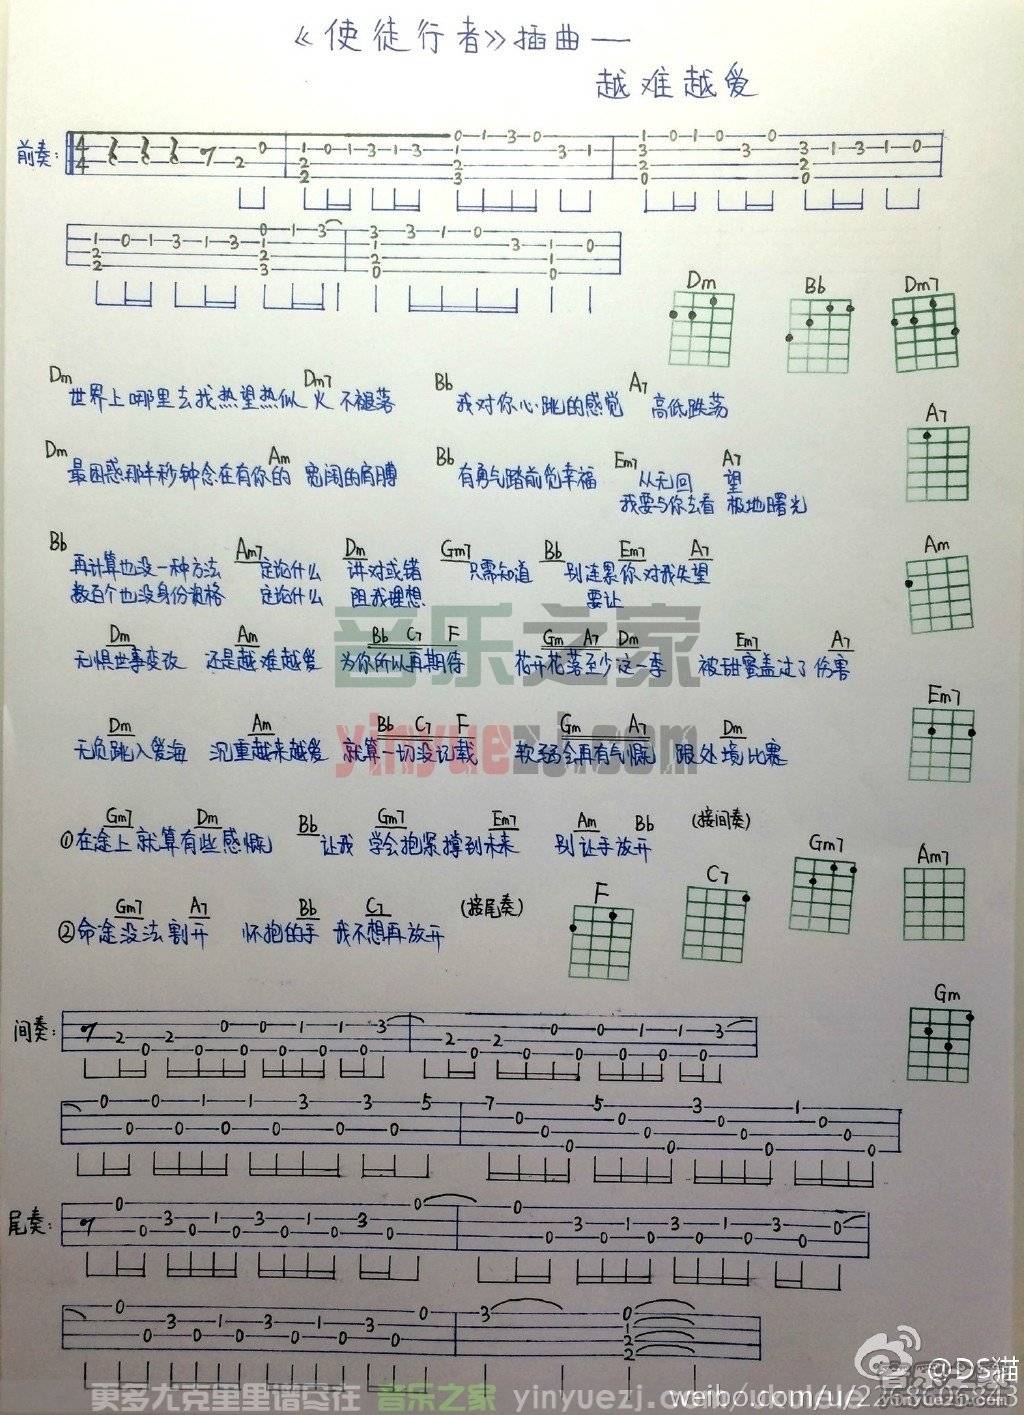 《使徒行者》插曲一
越难越爱
前奏:
Dm Bb Dm7
Dm Dm7 Bb A7
世界上哪里去找热望热似火不褪落 我对你心跳的感觉 高低跌荡
A7
Dm Am Bb Em7 A7
最困惑那半秒钟念在有你的 宽阔的肩膊 有勇气踏前觅幸福 从无回 望
我要与你去看 极地曙光
Am
Bb Am7 Dm Gm7 Bb Em7 A7
再计算也没一种方法 定论什么 讲对或错 只需知道 别连累你对我失望
数百个也没身份资格 定论什么 阻我理想 要让
Dm Am Bb C7 F Gm A7 Dm Em7 A7
无惧世事变改 还是越难越爱 为你所以再期待 花开花落至少这一季 被甜蜜盖过了伤害
Em7
Dm Am Bb C7 F Gm A7 Dm
无负跳入爱海 沉重越来越爱 就算一切没记载 软弱会再有气慨 跟处境比赛
Gm7 Dm Bb Gm7 Em7 Am Bb (接间奏)
①在途上就算有些感慨 让我 学会抱紧撑到未来 别让手放开
Gm7 Am7
C7
F
Gm7 A7 Bb C7 (接尾奏)
②命途没法割开 怀抱的手 我不想再放开
Gm
间奏:
尾奏:
音乐之家
yinyuezj.com
@DS猫
更多尤克里里谱尽在 音乐之家 yinyuezj.com